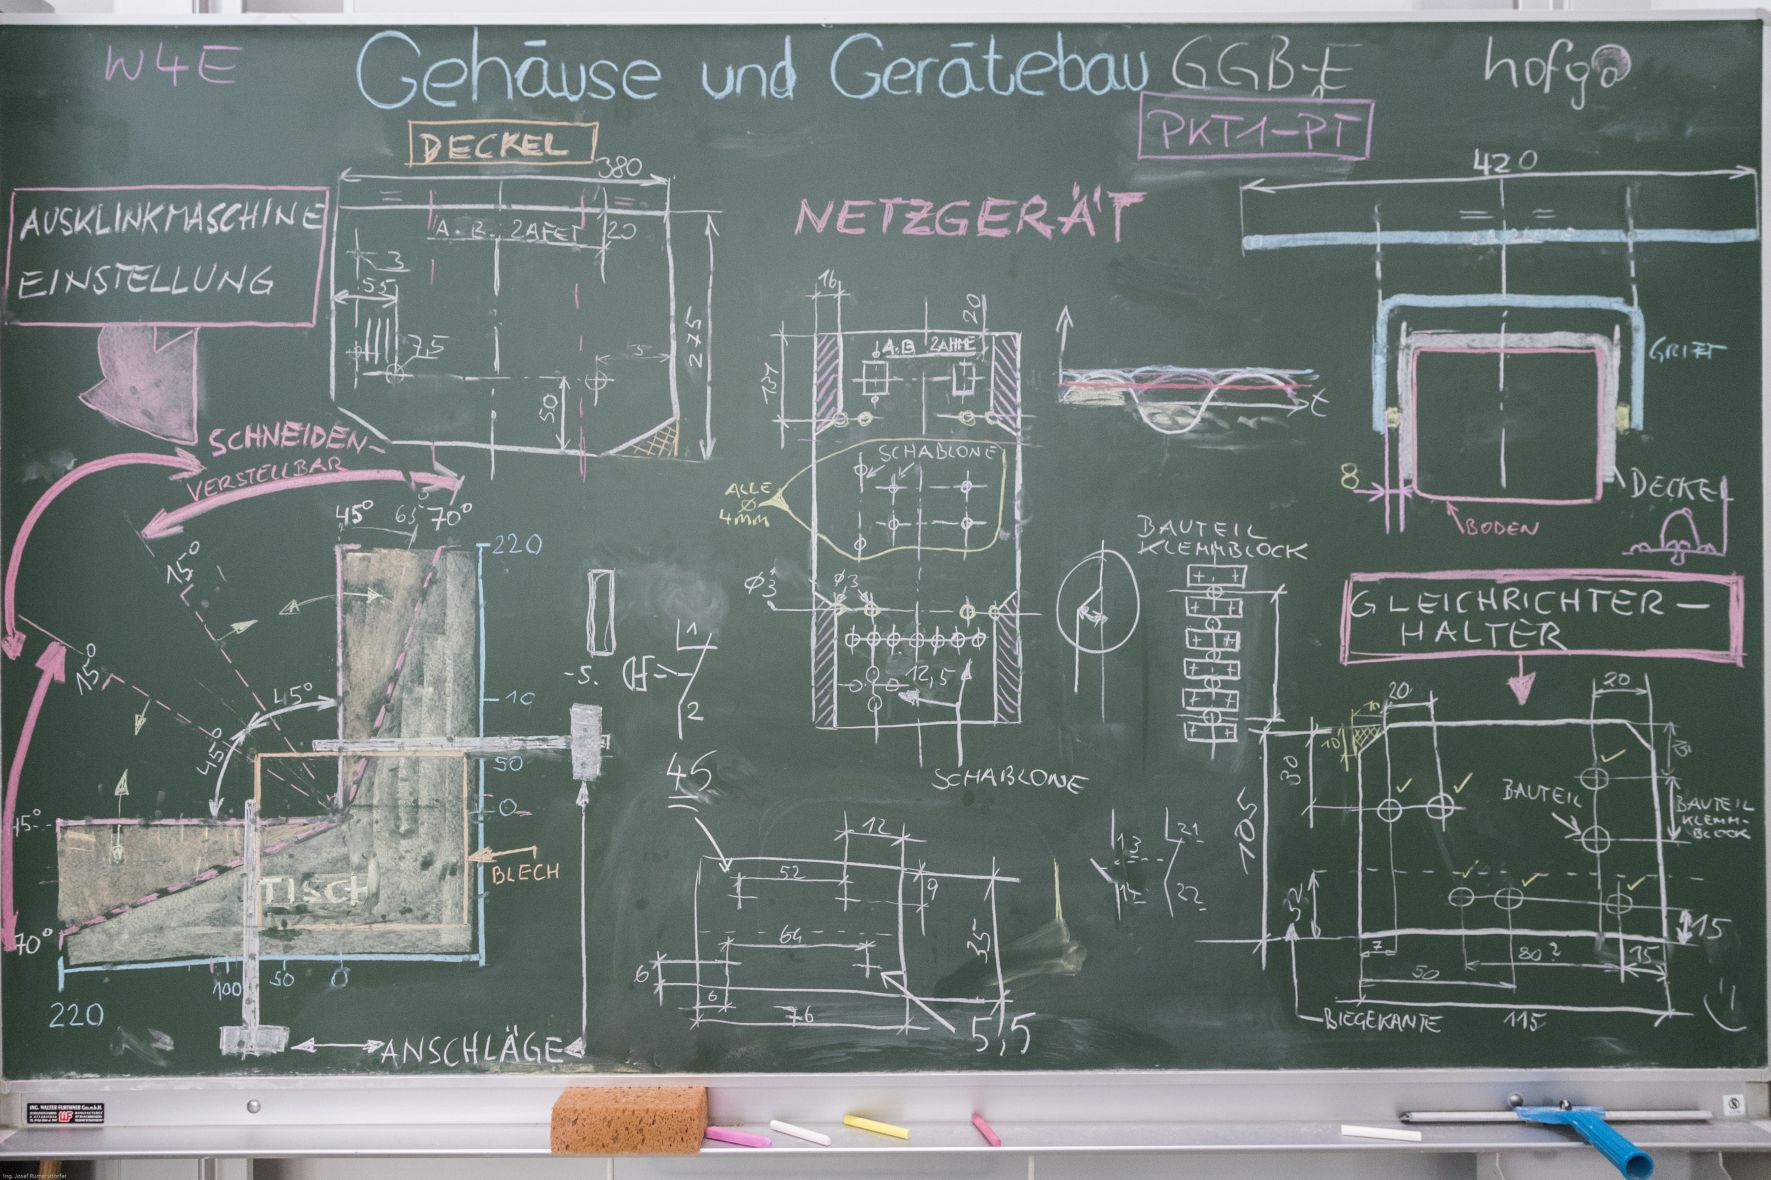 W4E
Gehäuse und Gerätebau
GGB-E
hofgo
DECKEL
PKT1-PT
380
420
AUSKLINKMASCHINE
EINSTELLUNG
= =
20
3
55
7,5
50
275
NETZGERÄT
16
20
A.B. ZAHME
t
GRIFF
8
DECKEL
BODEN
SCHNEIDEN-
VERSTELLBAR
45° 65° 70°
15°
15°
45°
45°
45°
70°
220
10
50
0
TISCH
BLECH
100 50 0
220
ANSCHLÄGE
SCHABLONE
ALLE
Ø
4MM
Ø3
Ø3
12,5
SCHABLONE
-S.
1
2
BAUTEIL
KLEMMBLOCK
GLEICHRICHTER-
HALTER
45
12
52
9
64
35
6
6
76
5,5
13
14
21
22
20
20
10
30
105
BAUTEIL
BAUTEIL
KLEMM-
BLOCK
32
15
7
80
15
50
BIEGEKANTE
115
ING. WALTER FURTHNER Ges.m.b.H.
Ing. Josef Rumersdorfer